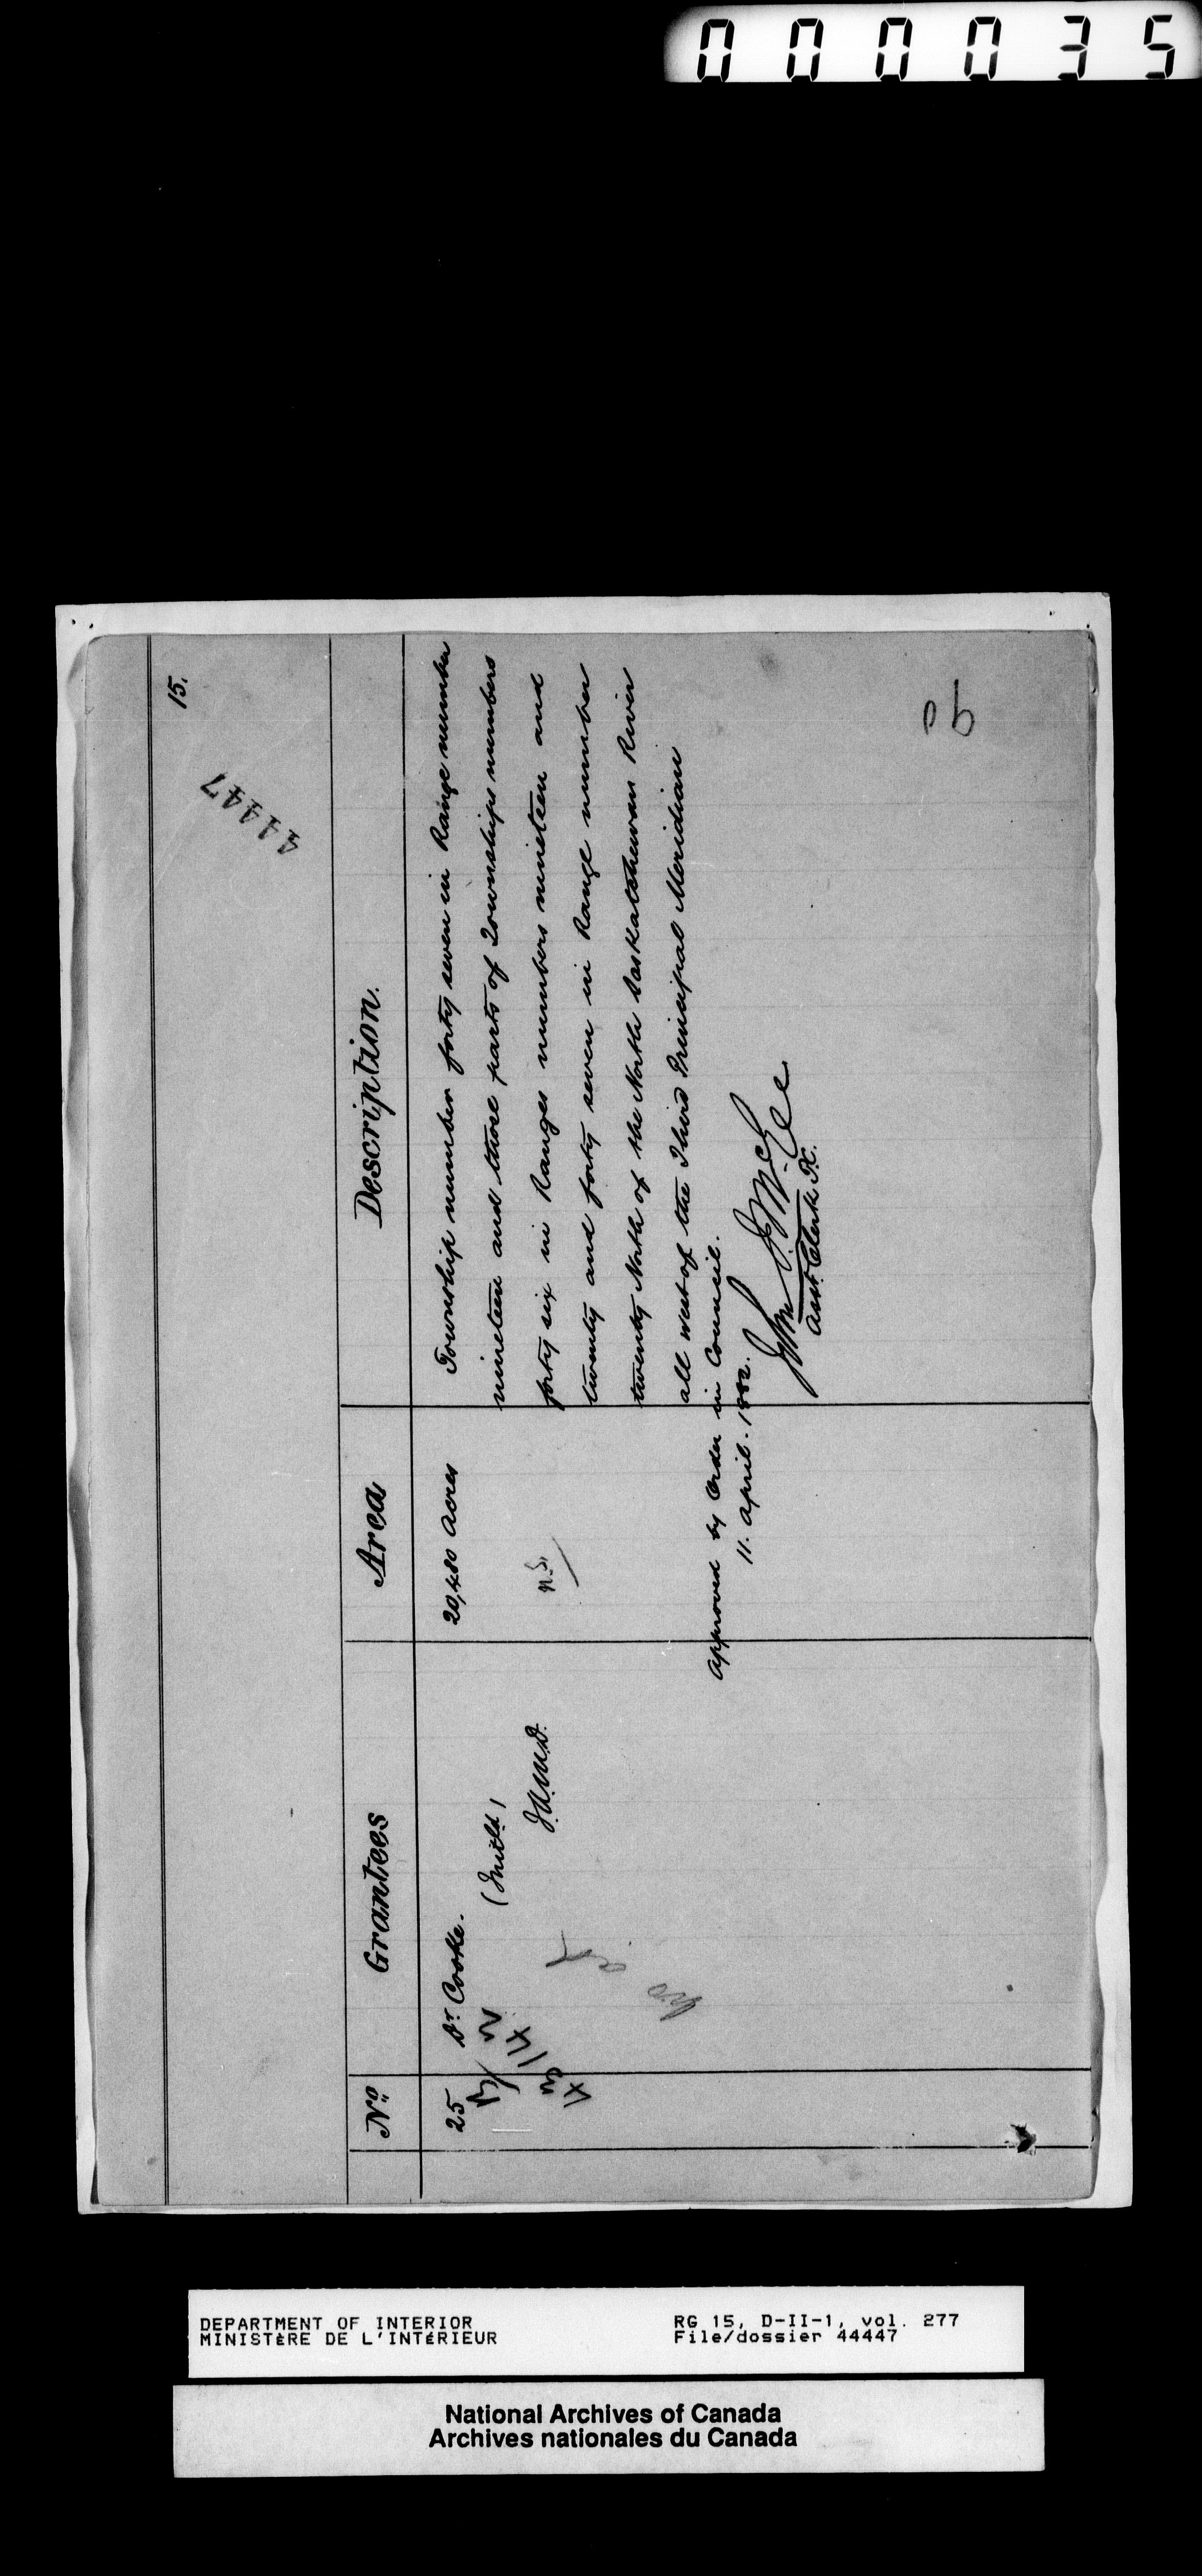 000035
15.
44447
No
Grantees
Area
Description.
25
Dr Cooke.
20,480 Acres
Township number forty seven in Range number
nineteen and those parts of Townships numbers
forty six in Ranges numbers nineteen and
twenty and forty seven in Range number
twenty North of the North Saskatchewan River
all west of the Third Principal Meridian
(Initld)
Approved by Order in Council.
11. April. 1882.
John J McGee
Asst. Clerk P.C.
90
DEPARTMENT OF INTERIOR
MINISTÈRE DE L'INTÉRIEUR
RG 15, D-II-1, vol. 277
File/dossier 44447
National Archives of Canada
Archives nationales du Canada